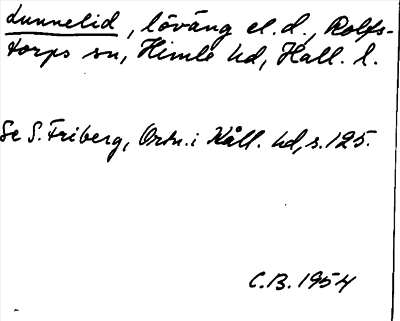 Lunnelid, löväng el. d., Rolfs-
torps sn, Himle hd, Hall. l.
Se S. Friberg, Ortn. i Käll. hd, s. 125.
C.B. 1954